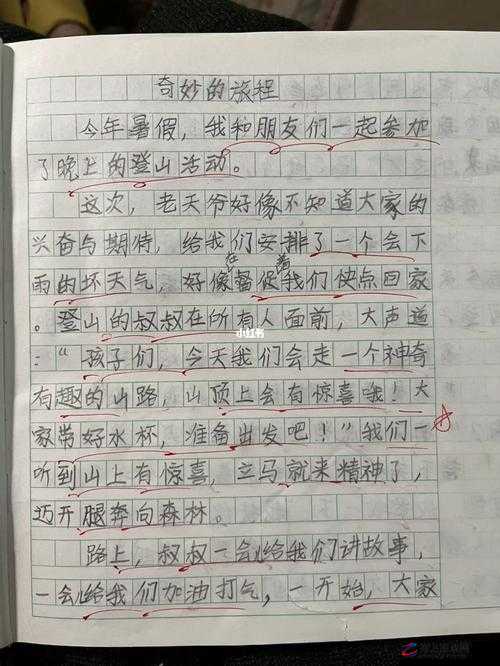 奇妙的旅程
今年暑假，我和朋友们一起参加
了晚上的登山活动。
这次，老天爷好像不知道大家的
兴奋与期待，给我们安排了一个会下
雨的坏天气，好像在督促着我们快点回家
。登山的叔叔在所有人面前，大声道
：“孩子们，今天我们会走一个神奇
有趣的山路，山顶上会有惊喜哦！大
家带好水杯，准备出发吧！”我们一
听到山上有惊喜，立马就来精神了，
迈开腿奔向森林。
路上，叔叔一会给我们讲故事，
一会给我们加油打气，一开始，大家
小红书